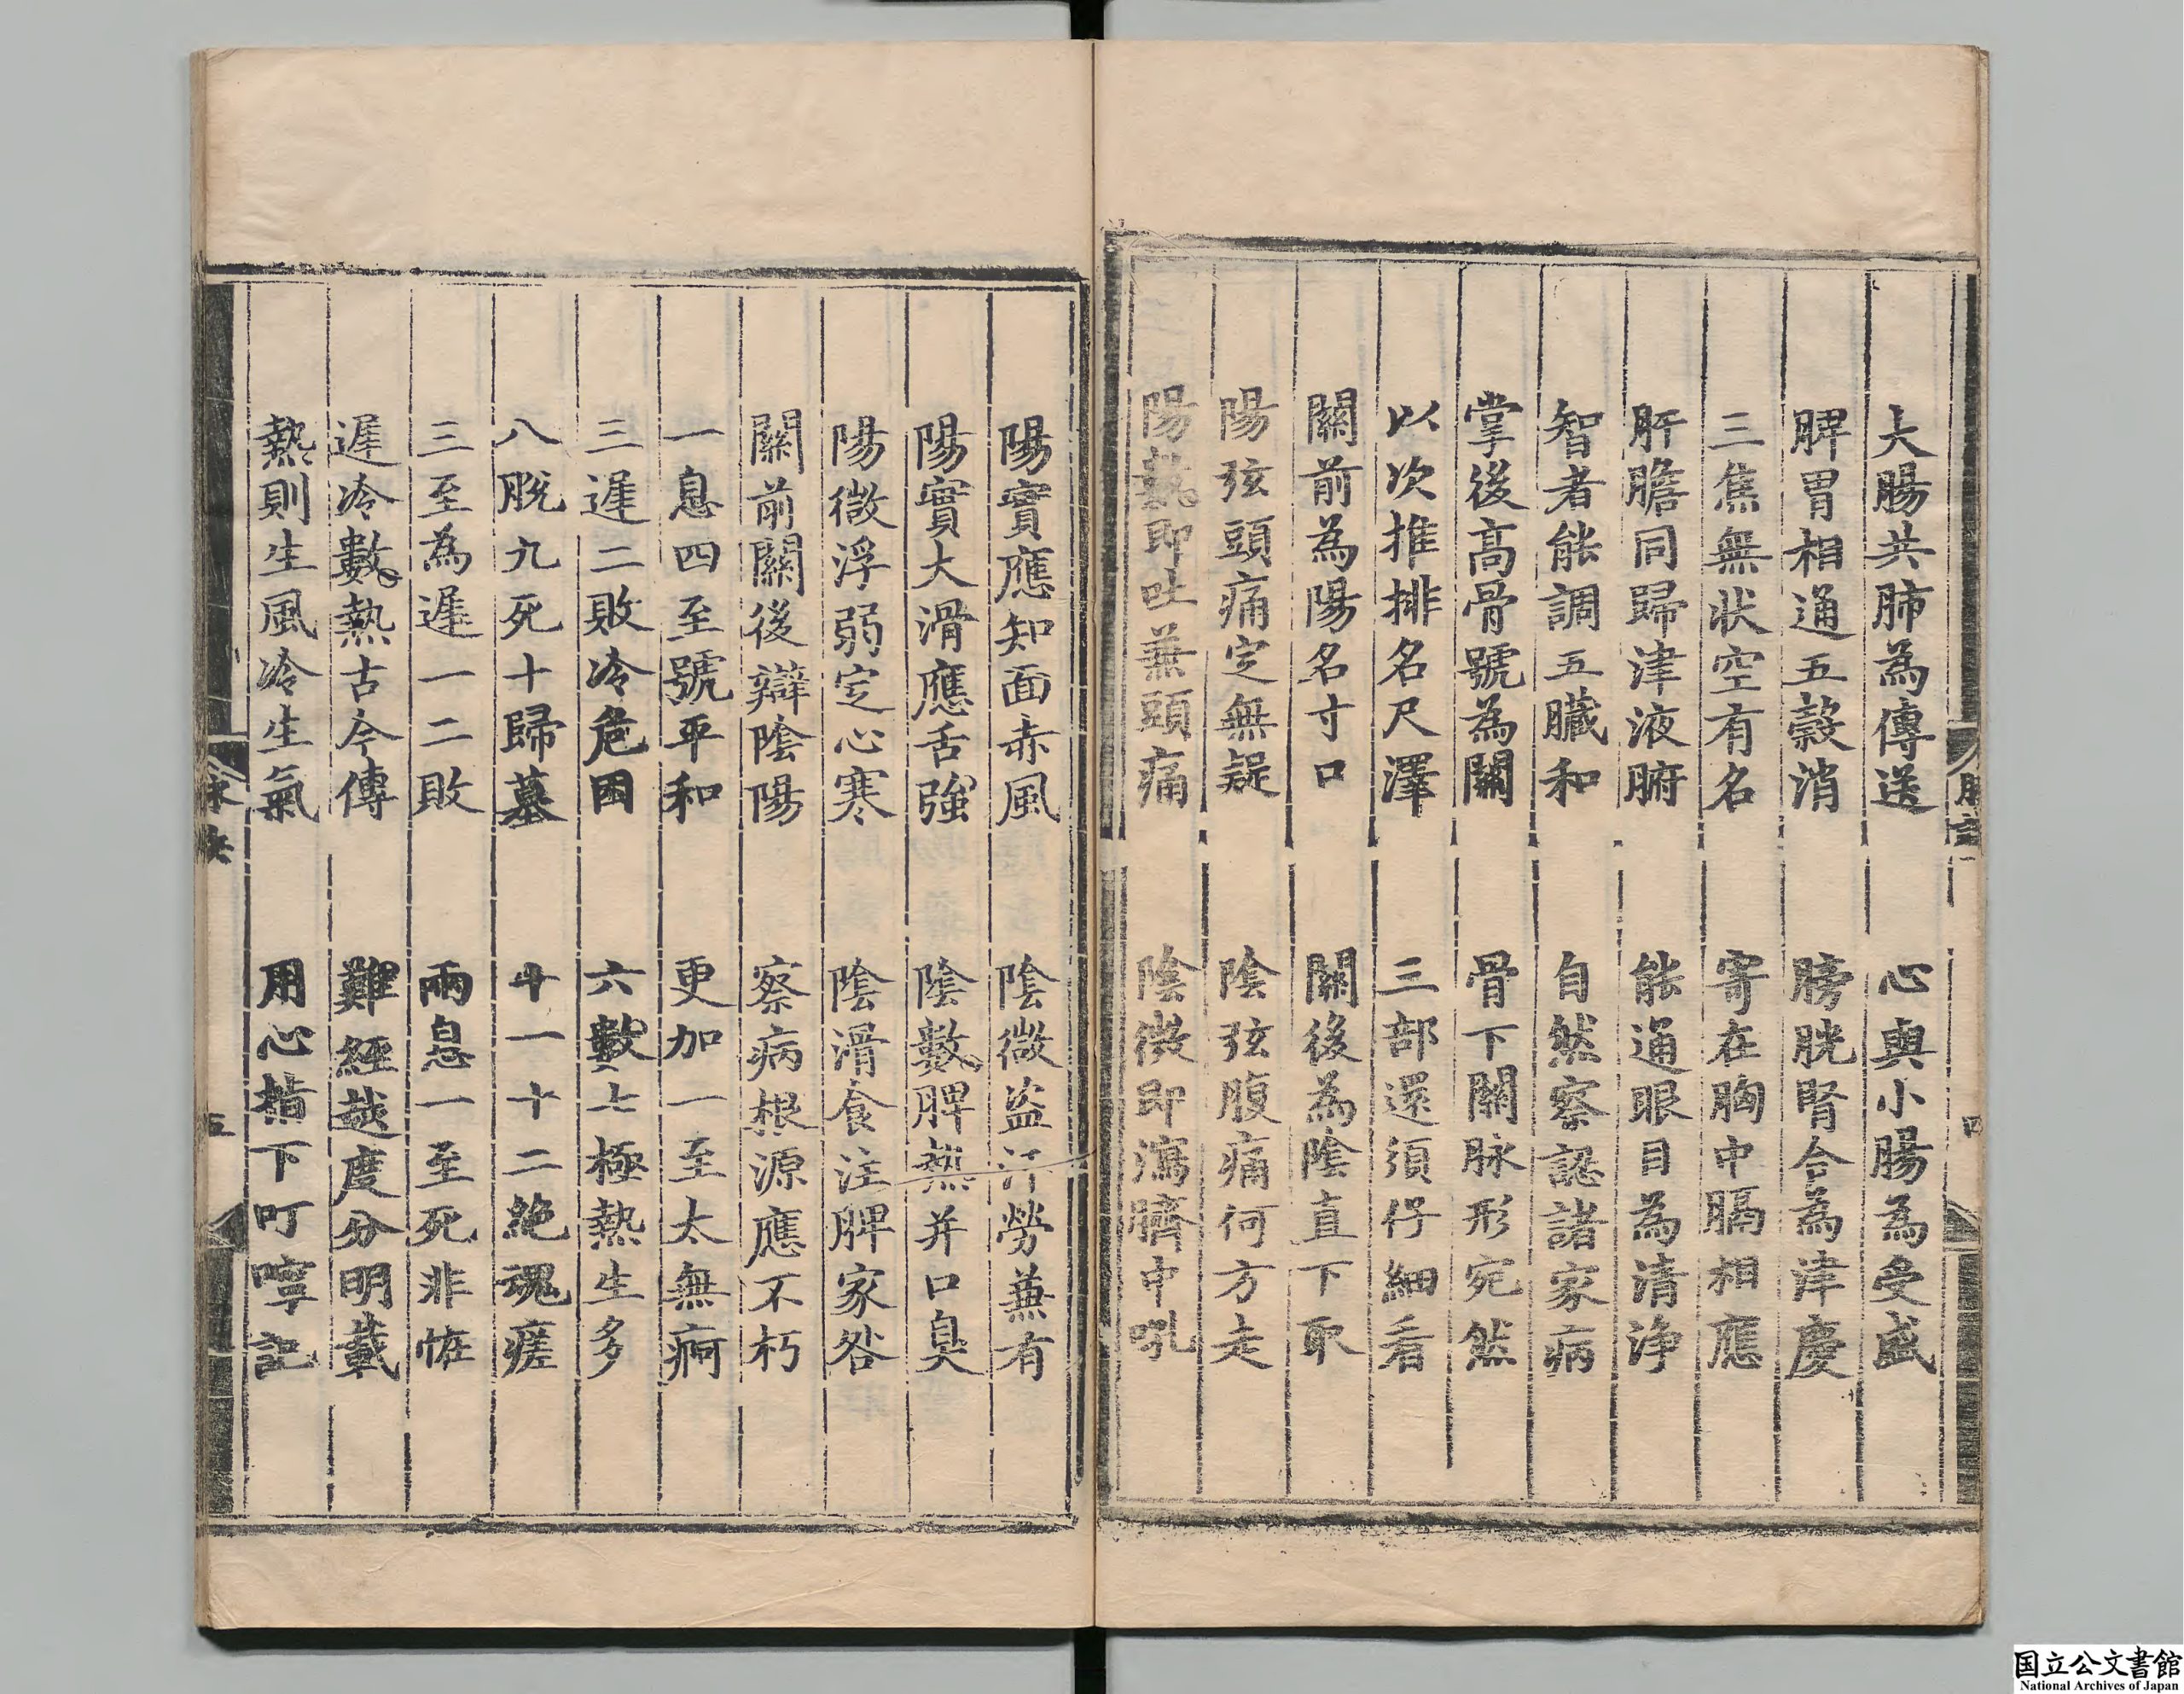 大腸共肺為傳送　心與小腸為受盛
脾胃相通五穀消　膀胱腎合為津慶
三焦無狀空有名　寄在胸中膈相應
肝膽同歸津液腑　能通眼目為清淨
智者能調五臟和　自然察認諸家病
掌後高骨號為關　骨下關脉形宛然
以次推排名尺澤　三部還須仔細看
關前為陽名寸口　關後為陰直下取
陽弦頭痛定無疑　陰弦腹痛何方走
陽數即吐兼頭痛　陰微即瀉臍中吼
陽實應知面赤風　陰微盜汗勞兼有
陽實大滑應舌強　陰數脾熱并口臭
陽微浮弱定心寒　陰滑食注脾家咎
關前關後辯陰陽　察病根源應不朽
一息四至號平和　更加一至太無痾
三遲二敗冷危困　六數七極熱生多
八脫九死十歸墓　十一十二絕魂瘥
三至為遲一二敗　兩息一至死非恠
遲冷數熱古今傳　難經越度分明載
熱則生風冷生氣　用心指下叮嚀記
脉訣
四
五
国立公文書館
National Archives of Japan